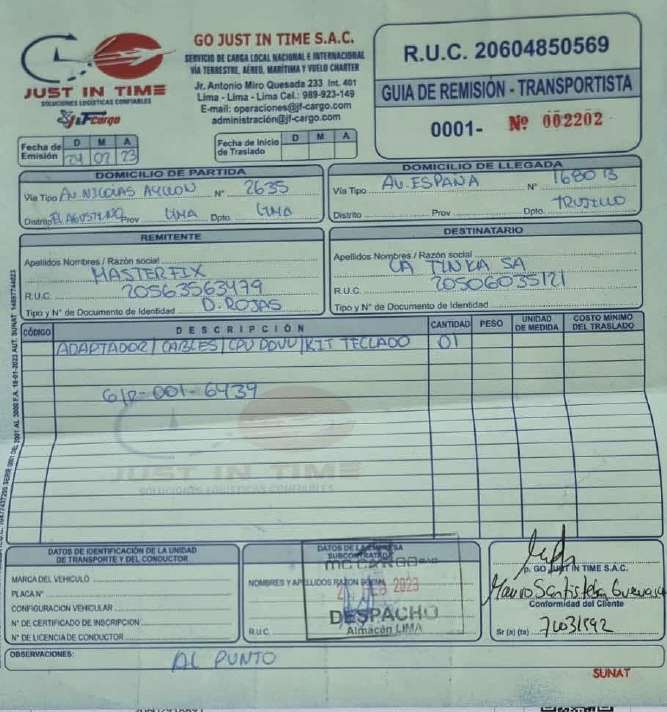 GO JUST IN TIME S.A.C.
SERVICIO DE CARGA LOCAL NACIONAL E INTERNACIONAL
VÍA TERRESTRE, AÉREO, MARÍTIMA Y VUELO CHARTER
Jr. Antonio Miro Quesada 233 Int. 401
Lima - Lima - Lima Cel.: 989-923-149
E-mail: operaciones@jf-cargo.com
administración@jf-cargo.com
JUST IN TIME
SOLUCIONES LOGÍSTICAS CONFIABLES
J&F Cargo
R.U.C. 20604850569
GUIA DE REMISIÓN - TRANSPORTISTA
0001- Nº 002202
Fecha de Emisión D M A
24 02 23
Fecha de Inicio de Traslado D M A
DOMICILIO DE PARTIDA
Vía Tipo AV. NICOLAS AYLLON Nº 2635
Distrito EL AGUSTINO Prov LIMA Dpto. LIMA
DOMICILIO DE LLEGADA
Vía Tipo AV. ESPAÑA Nº 1680 B
Distrito Prov Dpto. TRUJILLO
REMITENTE
Apellidos Nombres / Razón social
MASTERFIX
R.U.C. 20563563479
Tipo y Nº de Documento de Identidad D. ROJAS
DESTINATARIO
Apellidos Nombres / Razón social
LA TINKA SA
R.U.C. 20506035121
Tipo y Nº de Documento de Identidad
CÓDIGO DESCRIPCIÓN CANTIDAD PESO UNIDAD DE MEDIDA COSTO MÍNIMO DEL TRASLADO
ADAPTADOR / CABLES / CPU DDVU / KIT TECLADO 01
G/R-001-6439
JUST IN TIME
SOLUCIONES LOGÍSTICAS CONFIABLES
DATOS DE IDENTIFICACIÓN DE LA UNIDAD DE TRANSPORTE Y DEL CONDUCTOR
MARCA DEL VEHÍCULO
PLACA Nº
CONFIGURACIÓN VEHICULAR
Nº DE CERTIFICADO DE INSCRIPCIÓN
Nº DE LICENCIA DE CONDUCTOR
DATOS DE LA EMPRESA SUBCONTRATADA
NOMBRES Y APELLIDOS RAZÓN SOCIAL
R.U.C.
MC CARGO SAC
FEB 2023
DESPACHO
Almacén LIMA
p. GO JUST IN TIME S.A.C.
Conformidad del Cliente
Sr (a) (ta)
OBSERVACIONES: AL PUNTO
SUNAT